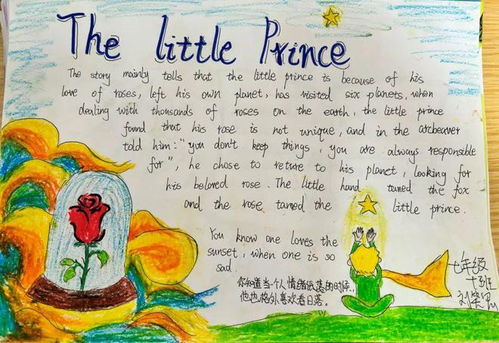 The little Prince
The story mainly tells that the little prince is because of his
love of roses, left his own planet, has visited six planets, when
dealing with thousands of roses on the earth, the little prince
found that his rose is not unique, and in the
told him: "you don't keep things, you are always responsible
for", he chose to reture to his planet, looking for
his beloved rose. The little hand tamed the fox
and the rose tamed the little prince.
You know one loves the
sunset, when one is so
sad.
你知道当一个人情绪低落的时候,
他也格外喜欢看日落。
七年级
十班
刘